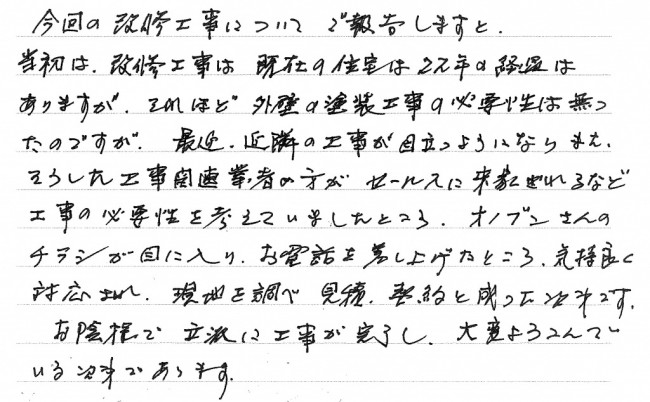 今回の改修工事についてご報告しますと、
当初は、改修工事は現在の住宅は22年の経過は
ありますが、それほど外壁の塗装工事の必要性は無っ
たのですが、最近、近隣の工事が目立つようになり また、
そうした工事関連業者の方がセールスに来訪されるなど
工事の必要性を考えていましたところ、オノブンさんの
チラシが目に入り、お電話を差し上げたところ、気持良く
対応され、現地を調べ見積、契約と成った次第です。
お陰様で立派に工事が完了し、大変よろこんで
いる次第であります。